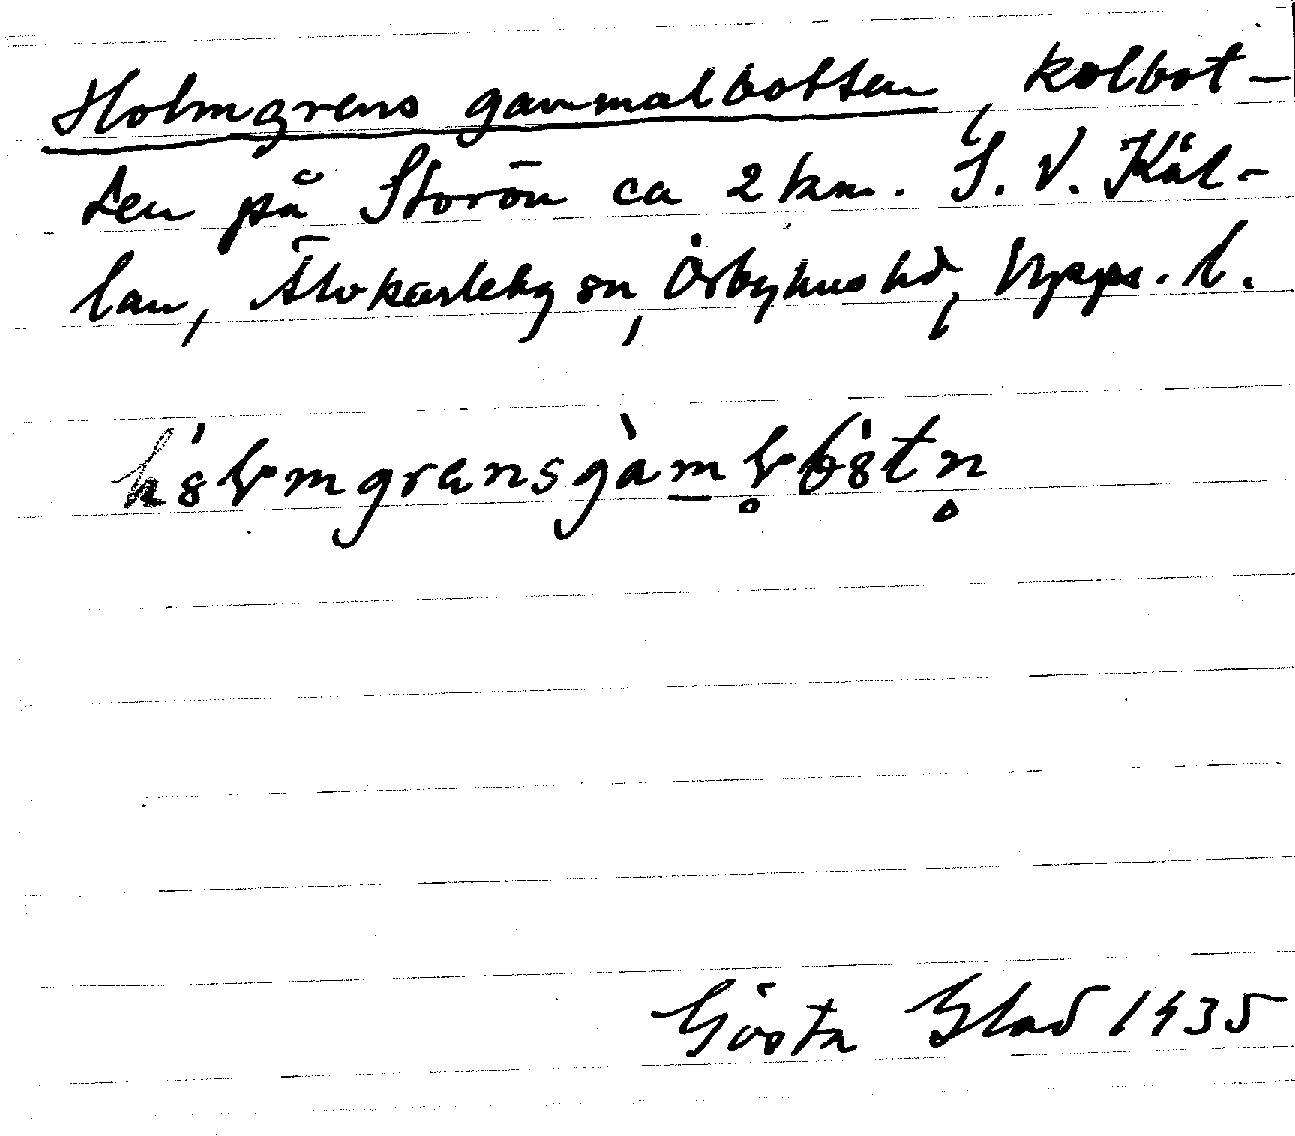 Holmgrens gammalbotten, kolbot-
ten på Storön ca 2 km. S. V. Käl-
lan, Älvkarleby sn, Örbyhus hd, Upps. l.
Gösta Blad 1935